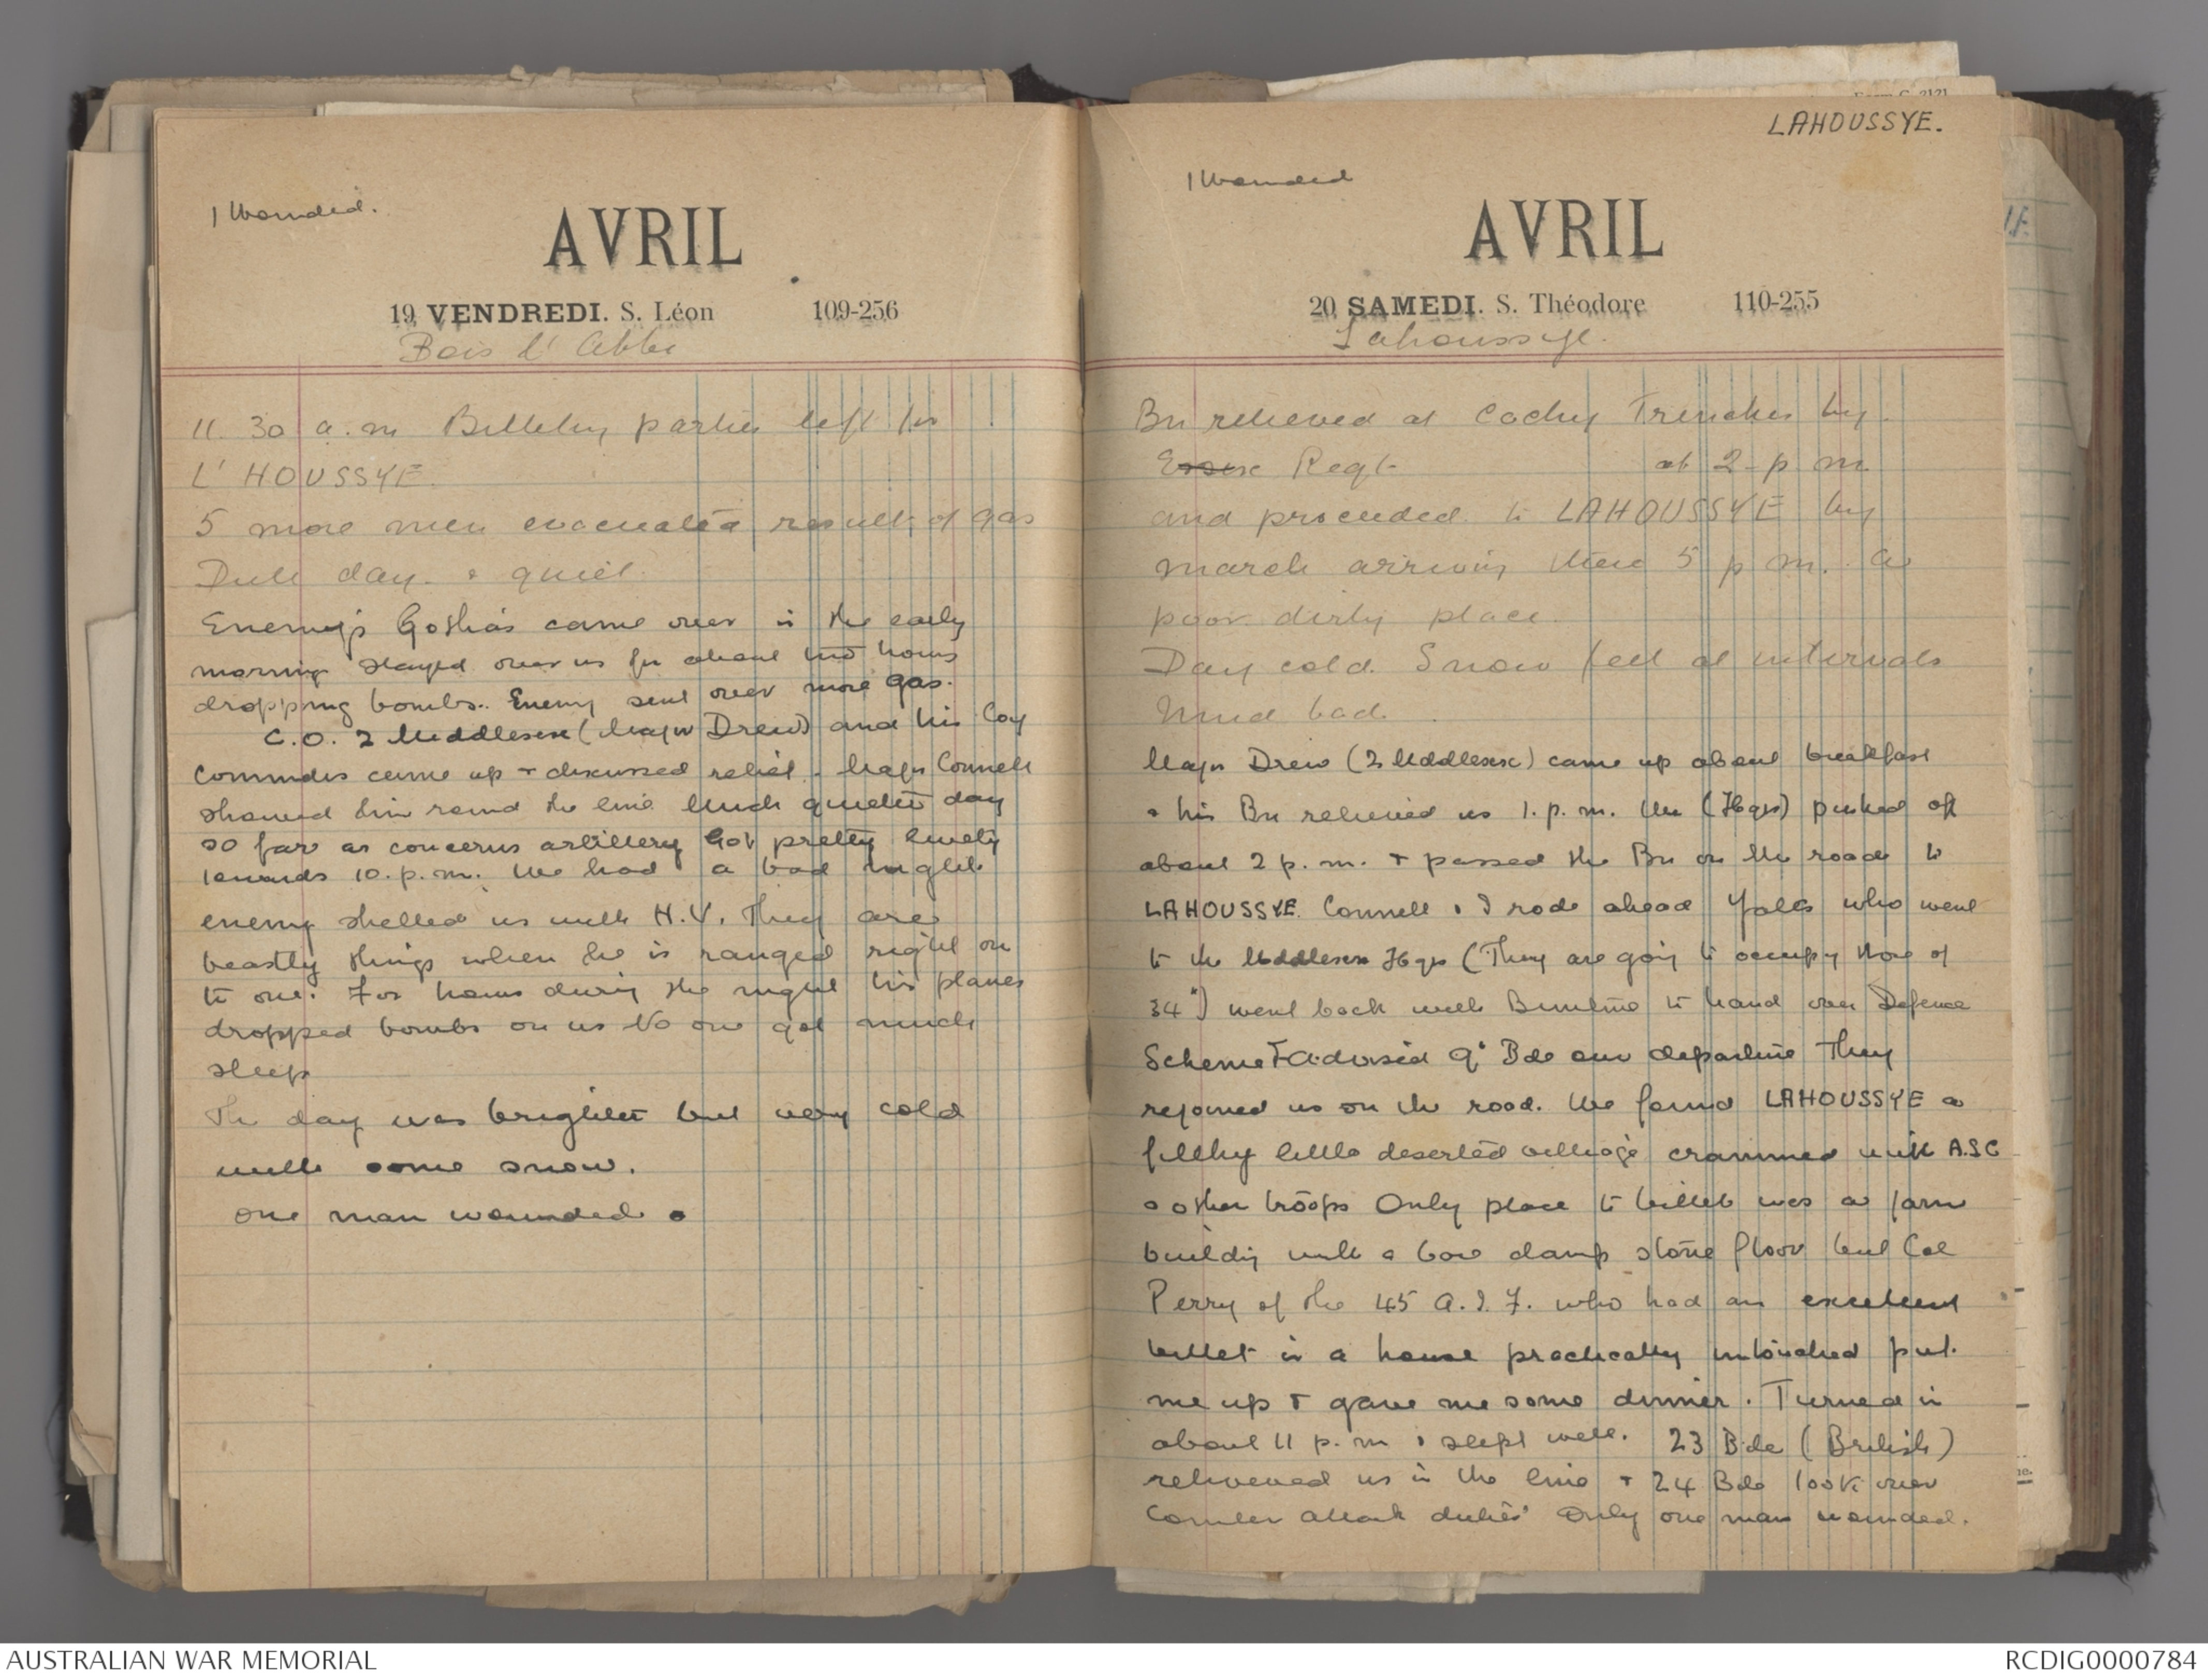 1 Wounded.
AVRIL
19 VENDREDI. S. Léon 109-256
Bois l' Abbe
11. 30 a.m Billeting parties left for
L' HOUSSYE.
5 more men evacuated result of gas
Dull day. & quiet.
Enemy's Gothas came over in the early
morning stayed over us for about two hours
dropping bombs. Enemy sent over more gas.
C.O. 2 Middlesex (Major Drew) and his Coy
Commders came up + discussed relief. Major Connell
showed him round the line Much quieter day
so far as concerns artillery Got pretty lively
towards 10. p.m. We had a bad night
enemy shelled us with H.V. They are
beastly things when he is ranged right on
to one. For hours during the night his planes
dropped bombs on us No one got much
sleep
The day was brighter but very cold
with some snow.
one man wounded
LAHOUSSYE.
1 Wounded
AVRIL
20 SAMEDI. S. Théodore 110-255
Lahoussye.
Bn relieved at Cachy Trenches by
Essex Regt at 2 p m
and proceeded to LAHOUSSYE by
march arriving there 5 p m. a
poor dirty place
Day cold. Snow fell at intervals
Mud bad.
Major Drew (2 Middlesex) came up about breakfast
& his Bn relieved us 1. p. m. We (Hqrs) pushed off
about 2 p. m. + passed the Bn on the road to
LAHOUSSYE. Connell & I rode ahead Yates who went
to the Middlesex Hqrs (They are going to occupy those of
34") went back with Bunting to hand over Defence
Scheme + advised 9" Bde our departure They
rejoined us on the road. We found LAHOUSSYE a
filthy little deserted village crammed with A.S.C
& other troops Only place to billet was a farm
building with a bare damp stone floor but Col
Perry of the 45 A. I. F. who had an excellent
billet in a house practically untouched put
me up + gave me some dinner. Turned in
about 11 p. m & slept well. 23 Bde (British)
relieveved us in the line + 24 Bde took over
Counter attack duties Only one man wounded.
AUSTRALIAN WAR MEMORIAL
RCDIG0000784